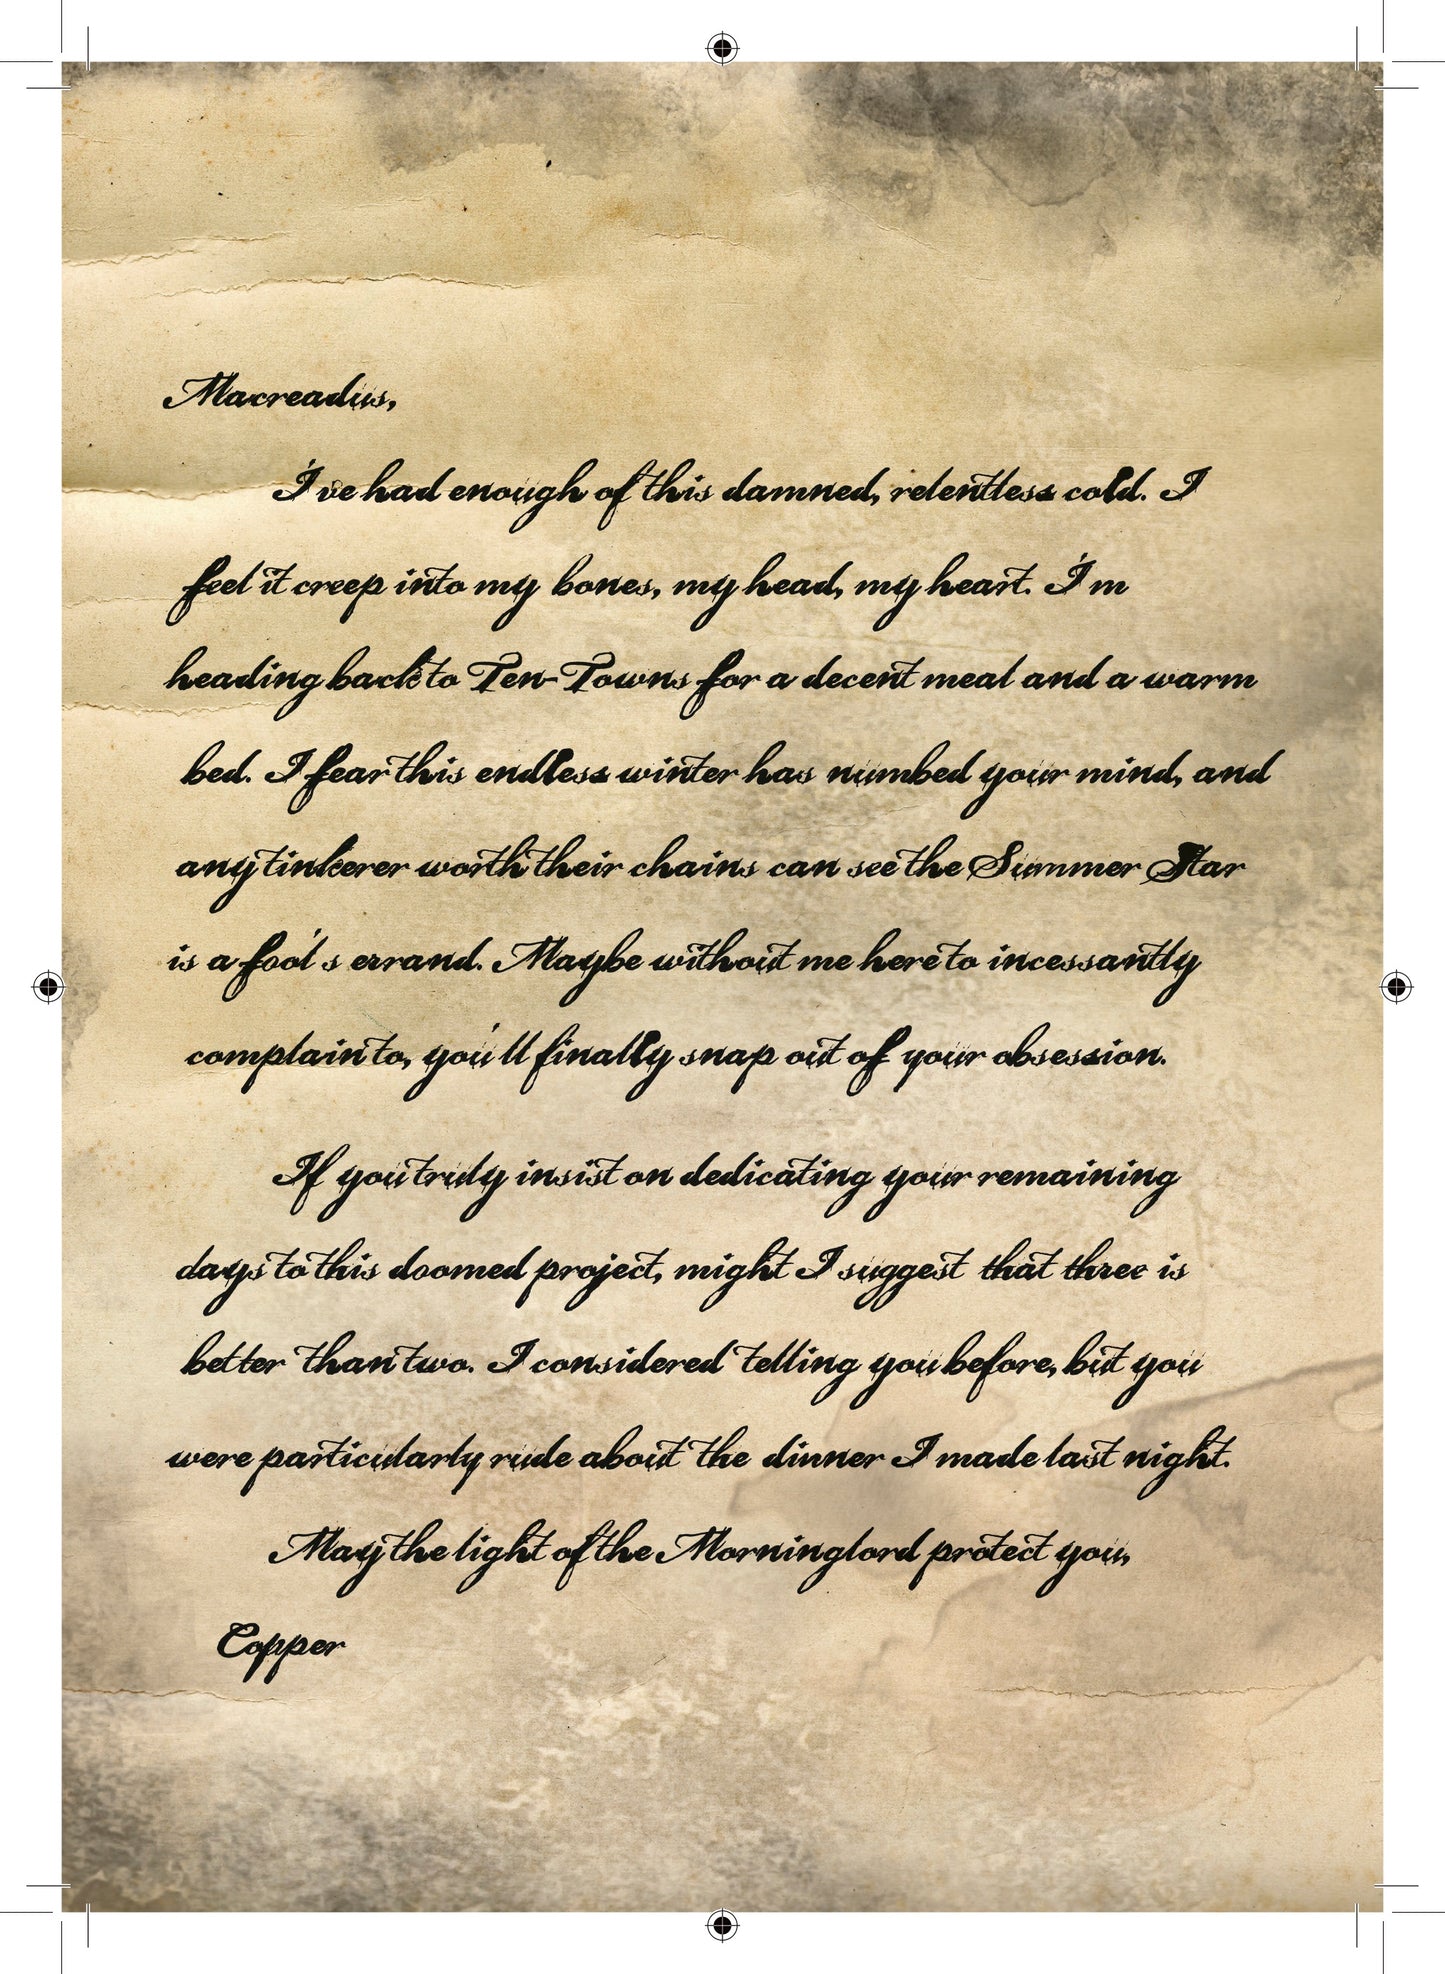 Macreadus,
I've had enough of this damned, relentless cold. I
feel it creep into my bones, my head, my heart. I'm
heading back to Ten-Towns for a decent meal and a warm
bed. I fear this endless winter has numbed your mind, and
any tinkerer worth their chains can see the Summer Star
is a fool's errand. Maybe without me here to incessantly
complain to, you'll finally snap out of your obsession.
If you truly insist on dedicating your remaining
days to this doomed project, might I suggest that three is
better than two. I considered telling you before, but you
were particularly rude about the dinner I made last night.
May the light of the Morninglord protect you,
Copper